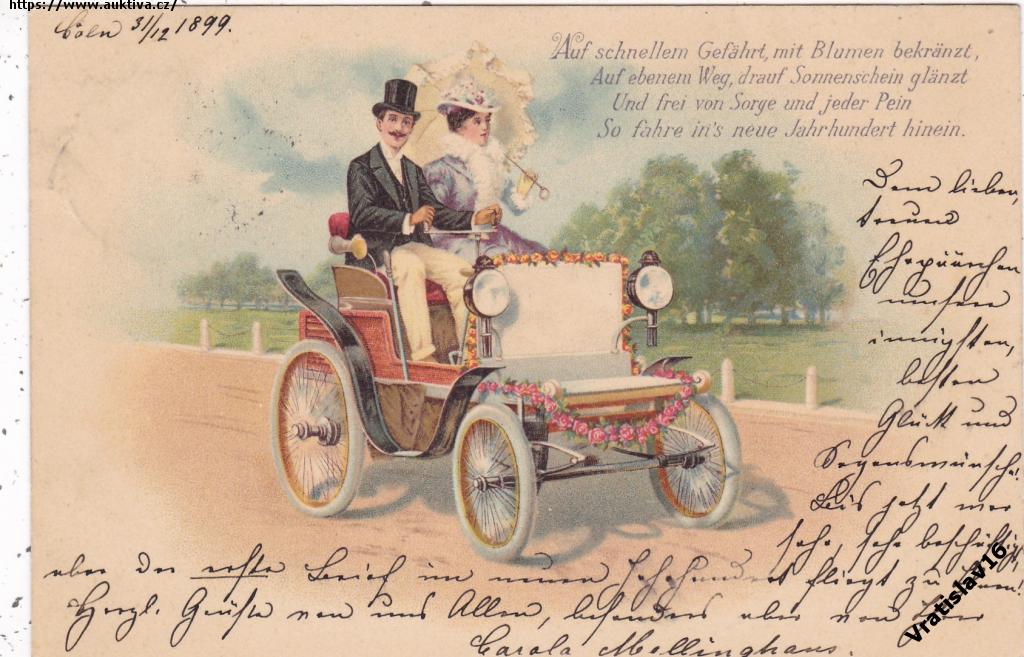 https://www.auktiva.cz/
Cöln 31/12 1899.
Auf schnellem Gefährt, mit Blumen bekränzt,
Auf ebenem Weg, drauf Sonnenschein glänzt
Und frei von Sorge und jeder Pein
So fahre in's neue Jahrhundert hinein.
Dem lieben,
treuen
Ehepäärchen
unsere
innigsten,
besten
Glück und
Segenswünsche!
Bis jetzt war
sehr, sehr beschäftigt
aber der erste Brief im neuen Jahrhundert fliegt zu
Herzl. Grüße von uns Allen, besonders aber von
Carola Mellinghaus.
Vratislav16